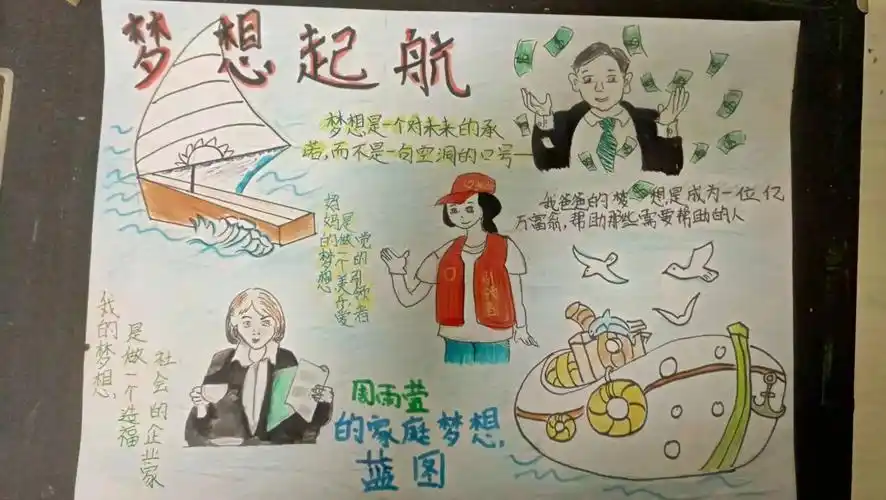 梦想起航
梦想是一个对未来的承
诺,而不是一句空洞的口号
我爸爸的梦想是成为一位亿
万富翁,帮助那些需要帮助的人
妈妈是
的梦想
做一个美
觉的引领者
引领者
我的梦想,
是做一个造福
社会的企业家
周雨萱
的家庭梦想,
蓝图